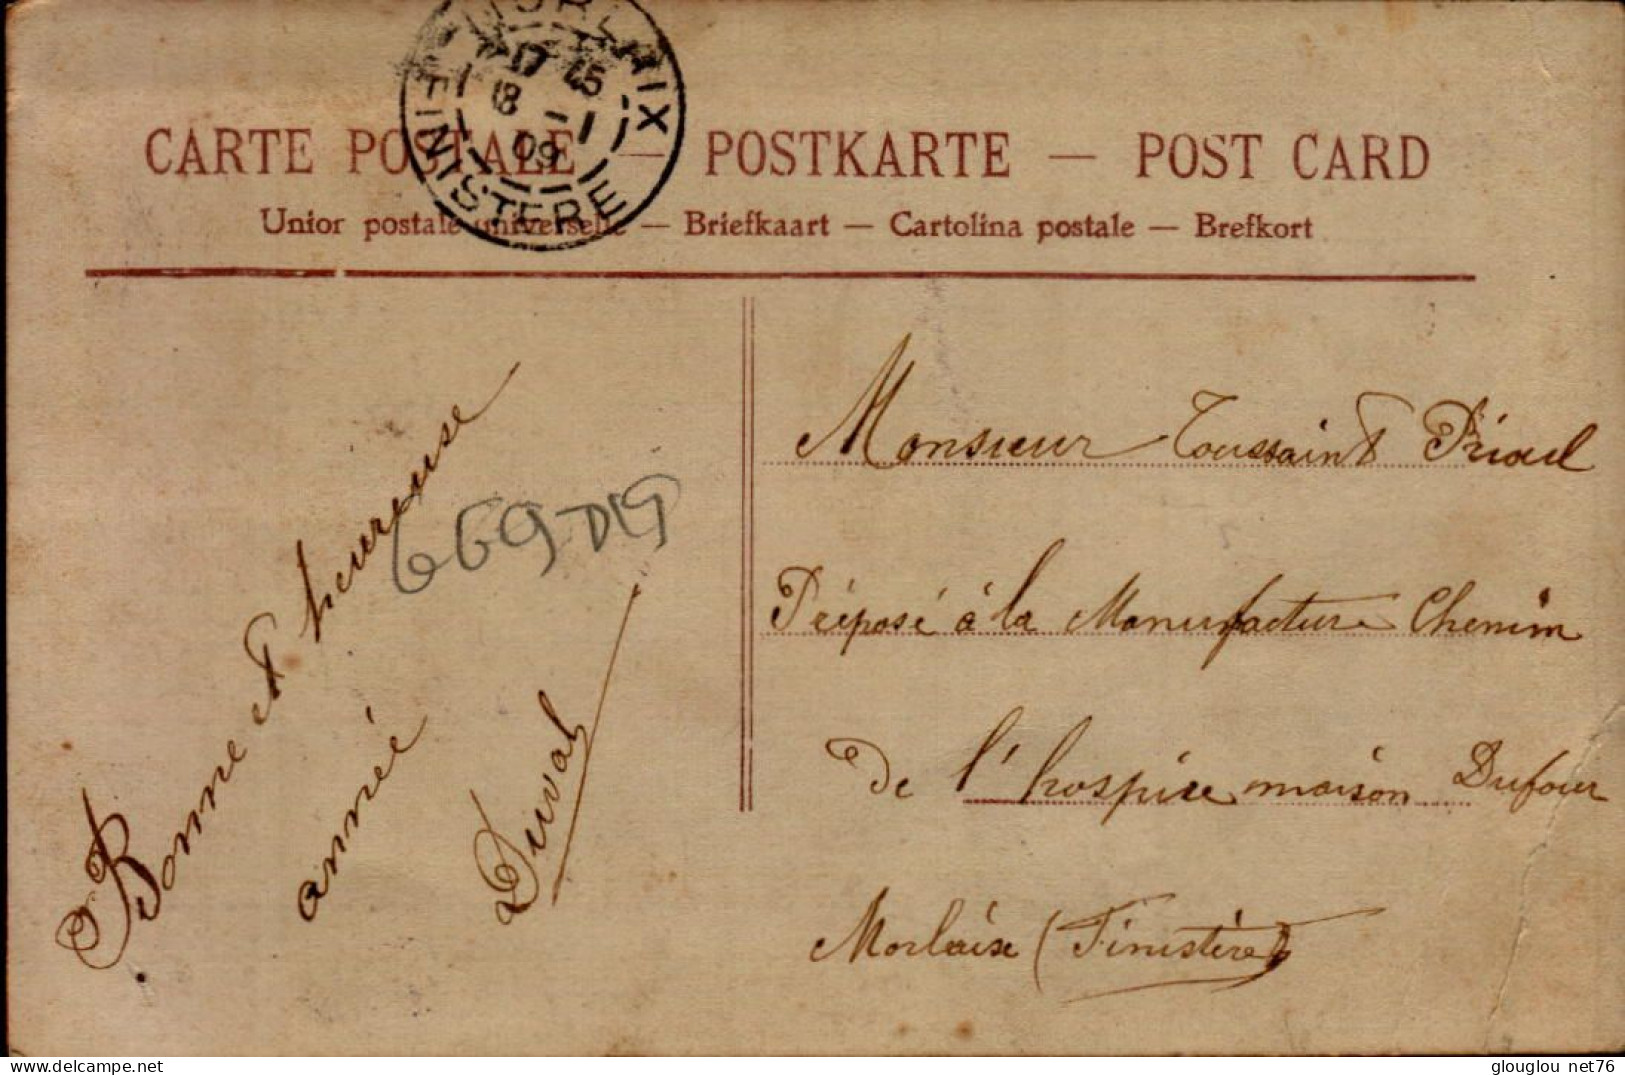 MORLAIX
17 15
8 -1
09
FINISTERE
CARTE POSTALE — POSTKARTE — POST CARD
Unior postale universelle — Briefkaart — Cartolina postale — Brefkort
Bonne et heureuse
année
Duval
669
Monsieur Toussaint
Préposé à la Manufacture Chemin
de l'hospice maison Dufour
Morlaise (Finistère)
delcampe.net
glouglou_net76